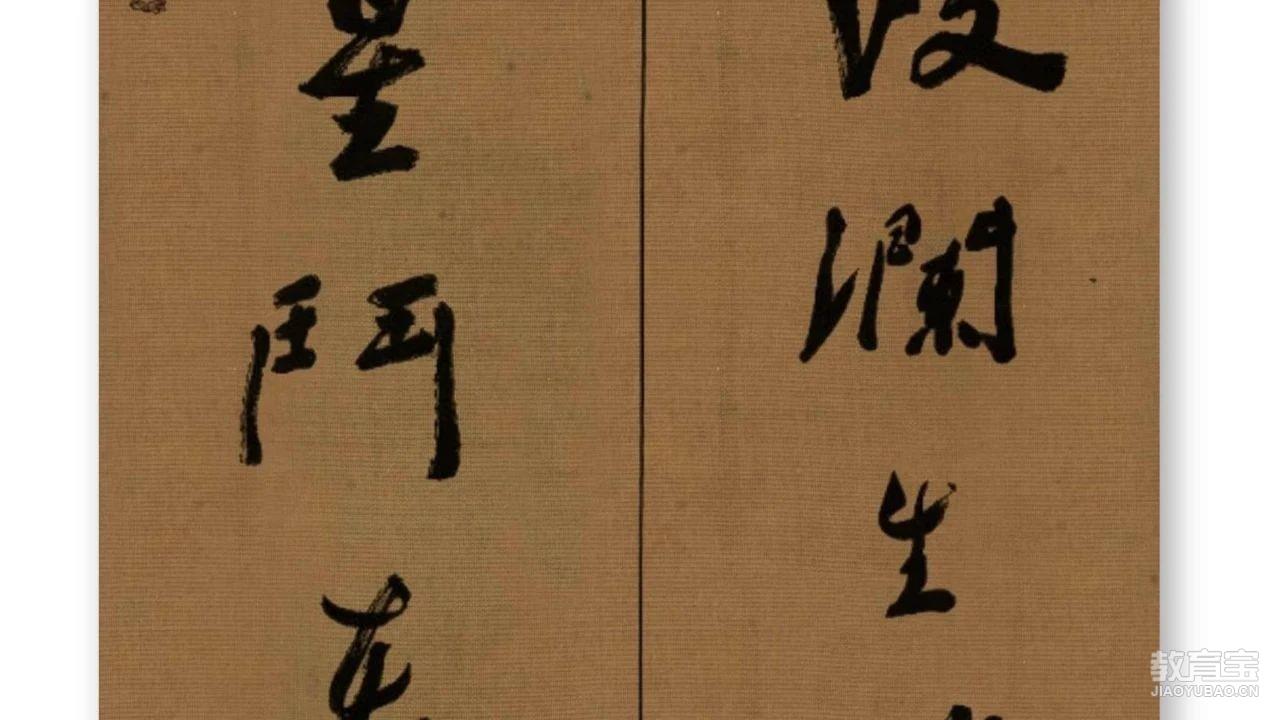 波瀾生
星鬥在
教育宝
JIAOYUBAO.CN